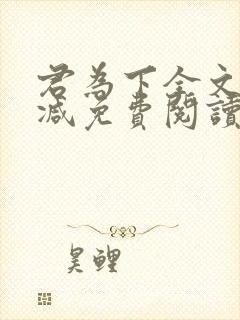 君為下全文
減免費閱讀
昊鯉